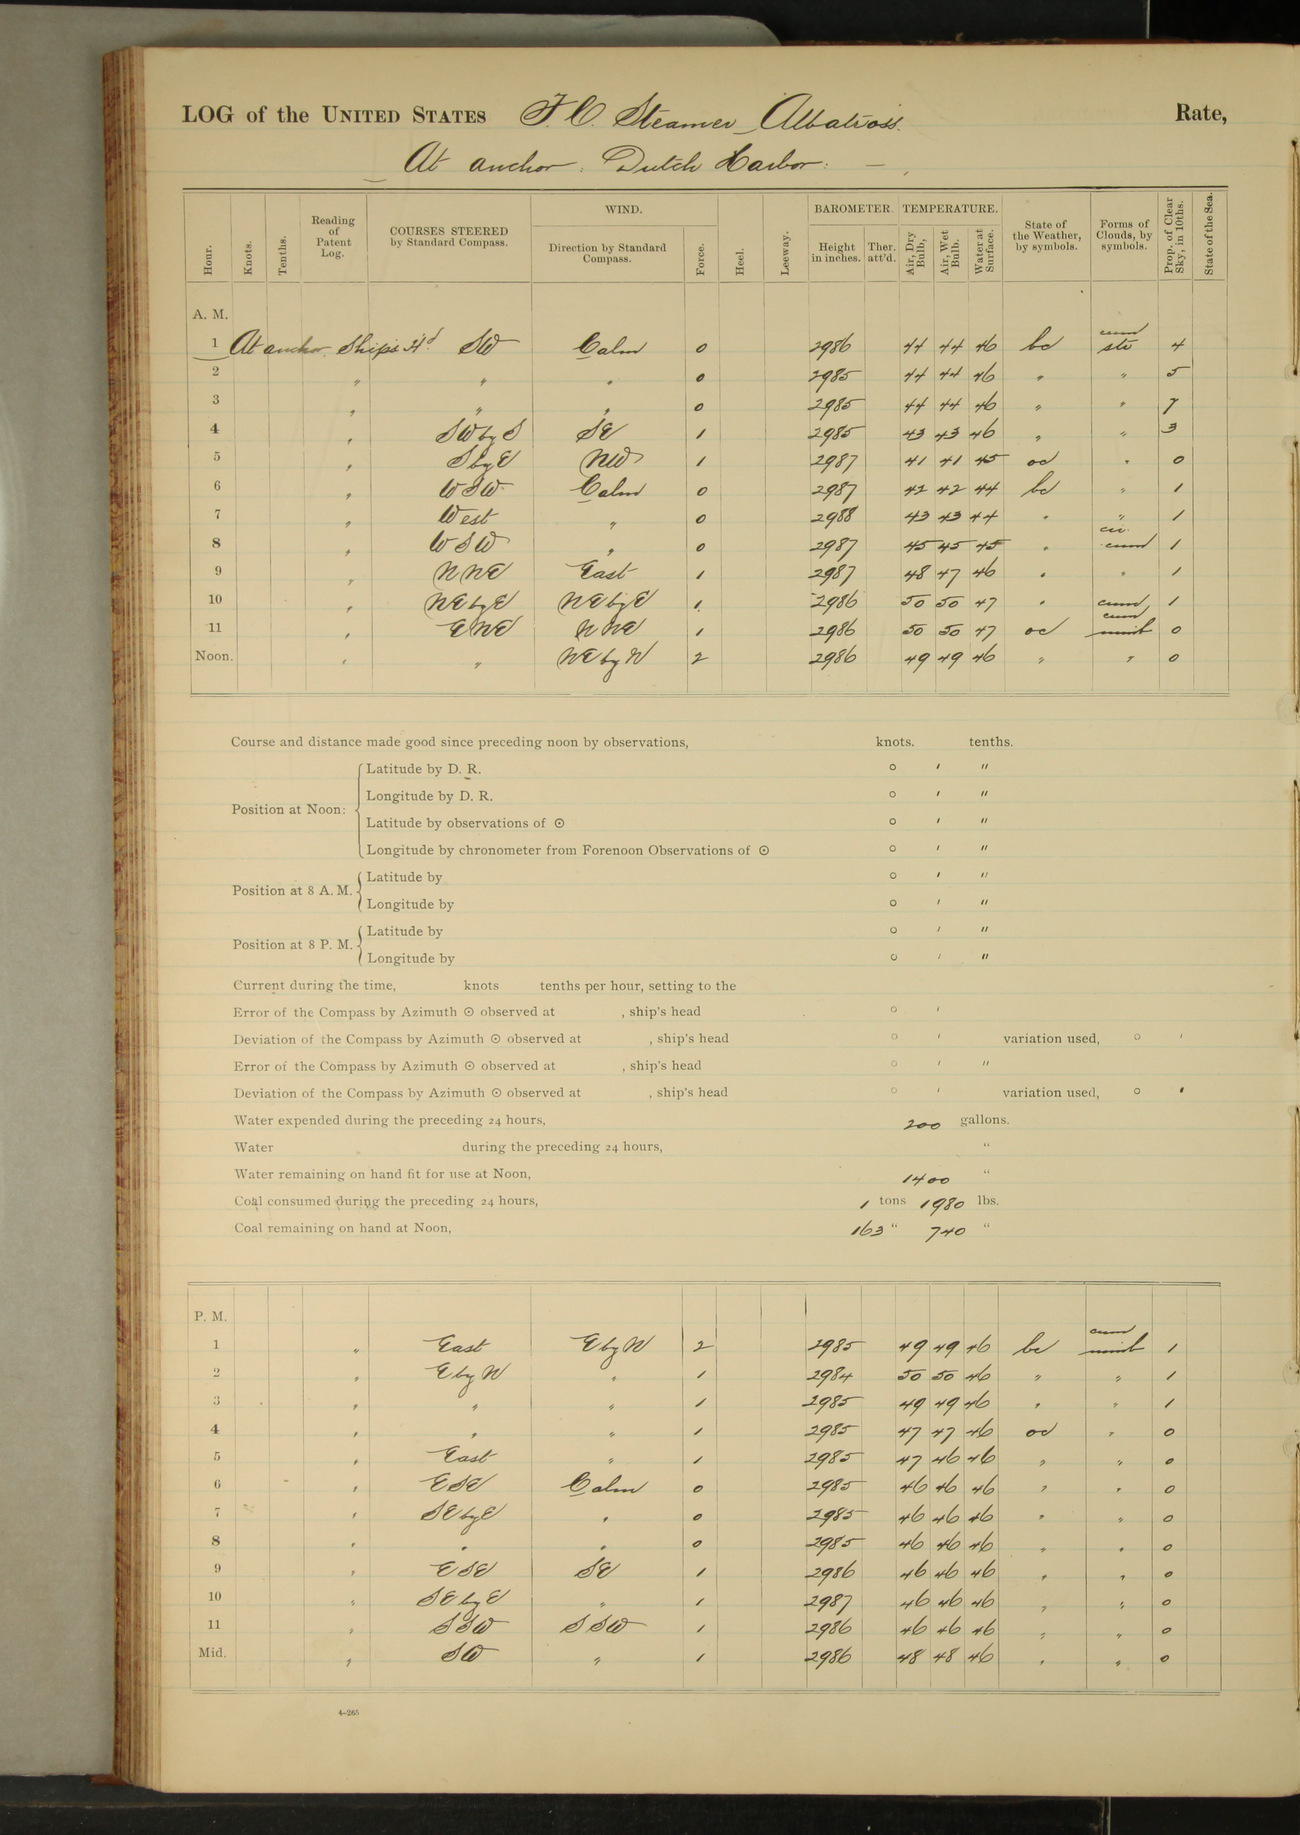 LOG of the UNITED STATES F. C. Steamer Albatross. Rate,
At anchor: Dutch Harbor:
Hour. Knots. Tenths. Reading of Patent Log. COURSES STEERED by Standard Compass. WIND. Direction by Standard Compass. Force. Heel. Leeway. BAROMETER. Height in inches. Ther. att'd. TEMPERATURE. Air, Dry Bulb, Air, Wet Bulb. Water at Surface. State of the Weather, by symbols. Forms of Clouds, by symbols. Prop. of Clear Sky, in 10ths. State of the Sea.
A. M.
1 At anchor. Ship's Hd. SW Calm 0 2986 44 44 46 bc cum str 4
2 " " " 0 2985 44 44 46 " " 5
3 " " " 0 2985 44 44 46 " " 7
4 " SW by S SE 1 2985 43 43 46 " " 3
5 " S by E NW 1 2987 41 41 45 oc " 0
6 " WSW Calm 0 2987 42 42 44 bc " 1
7 " West " 0 2988 43 43 44 " " 1
8 " WSW " 0 2987 45 45 45 " cir. cum 1
9 " NNE East 1 2987 48 47 46 " " 1
10 " NE by E NE by E 1. 2986 50 50 47 " cum 1
11 " ENE NNE 1 2986 50 50 47 oc cum nimb 0
Noon. " " NE by N 2 2986 49 49 46 " " 0
Course and distance made good since preceding noon by observations, knots. tenths.
Position at Noon: Latitude by D. R. ° ′ ″
Longitude by D. R. ° ′ ″
Latitude by observations of ☉ ° ′ ″
Longitude by chronometer from Forenoon Observations of ☉ ° ′ ″
Position at 8 A. M. Latitude by ° ′ ″
Longitude by ° ′ ″
Position at 8 P. M. Latitude by ° ′ ″
Longitude by ° ′ ″
Current during the time, knots tenths per hour, setting to the
Error of the Compass by Azimuth ☉ observed at , ship's head ° ′
Deviation of the Compass by Azimuth ☉ observed at , ship's head ° ′ variation used, ° ′
Error of the Compass by Azimuth ☉ observed at , ship's head ° ′ ″
Deviation of the Compass by Azimuth ☉ observed at , ship's head ° ′ variation used, ° ′
Water expended during the preceding 24 hours, 200 gallons.
Water during the preceding 24 hours, "
Water remaining on hand fit for use at Noon, 1400 "
Coal consumed during the preceding 24 hours, 1 tons 1980 lbs.
Coal remaining on hand at Noon, 163 " 740 "
P. M.
1 " East E by N 2 2985 49 49 46 bc cum nimb 1
2 " E by N " 1 2984 50 50 46 " " 1
3 " " " 1 2985 49 49 46 " " 1
4 " " " 1 2985 47 47 46 oc " 0
5 " East " 1 2985 47 46 46 " " 0
6 " ESE Calm 0 2985 46 46 46 " " 0
7 " SE by E " 0 2985 46 46 46 " " 0
8 " " " 0 2985 46 46 46 " " 0
9 " ESE SE 1 2986 46 46 46 " " 0
10 " SE by E " 1 2987 46 46 46 " " 0
11 " SSW SSW 1 2986 46 46 46 " " 0
Mid. " SW " 1 2986 48 48 46 " " 0
4–265